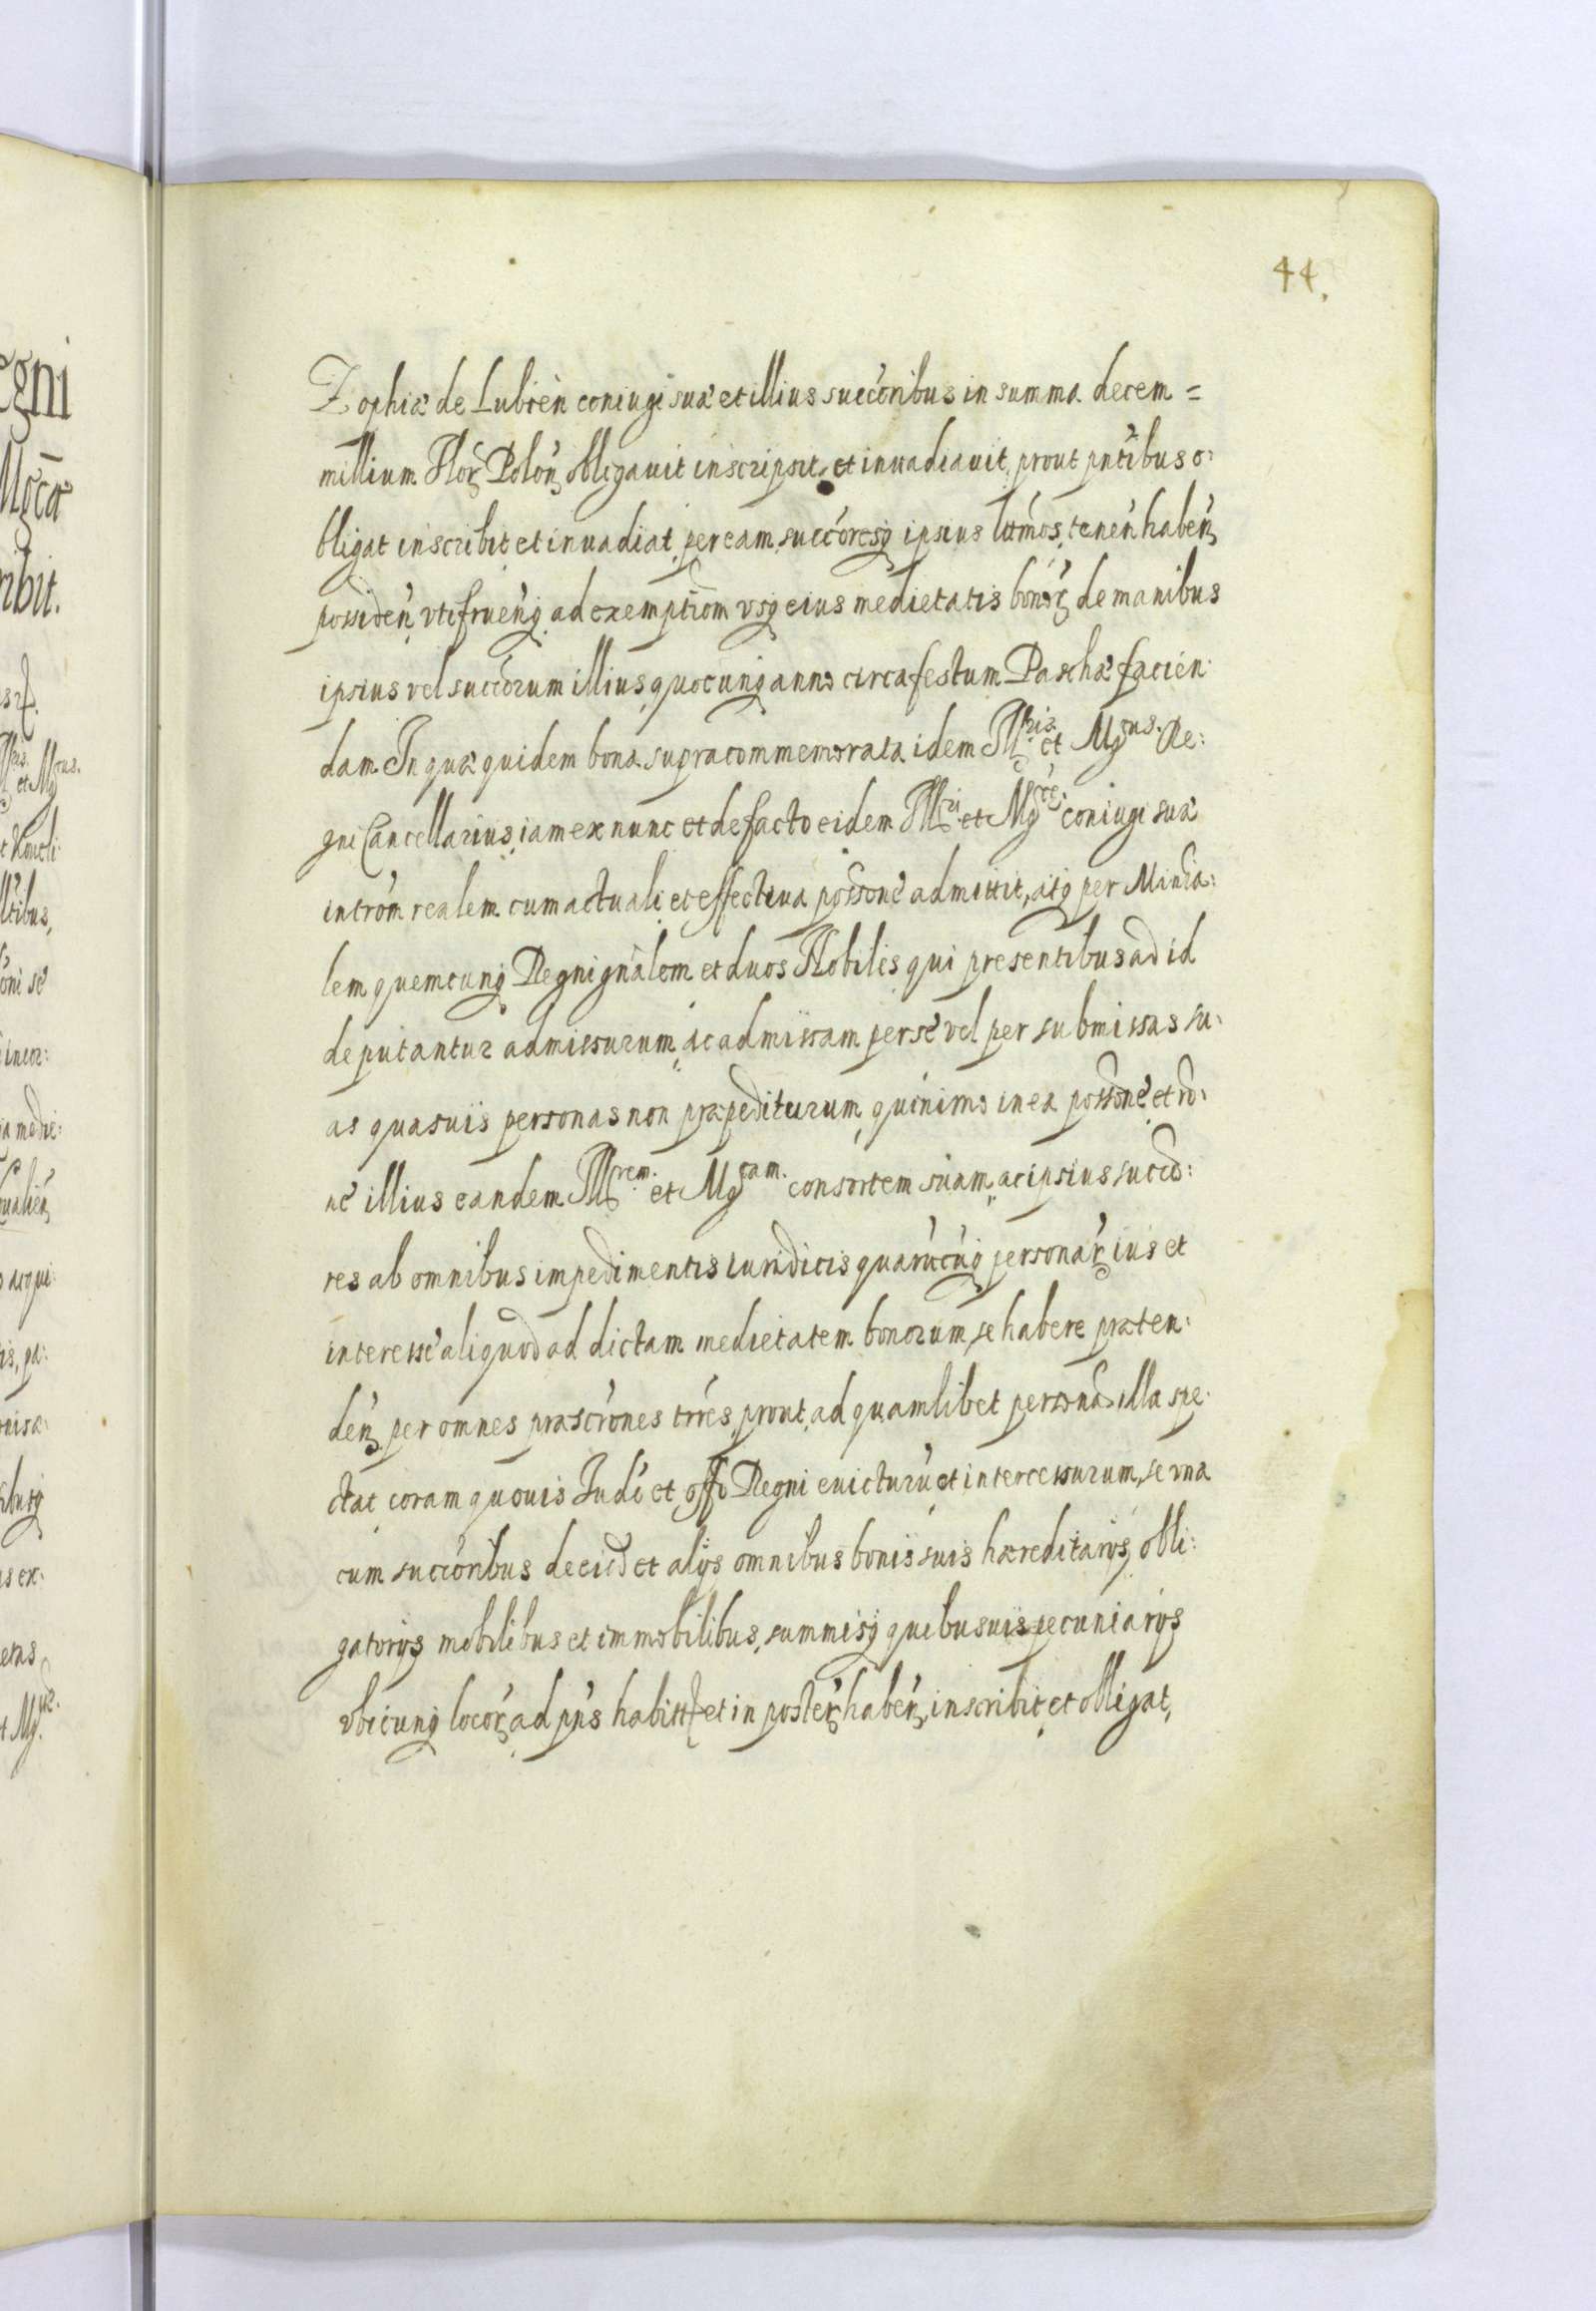 44.
Zophiæ de Lubień coniugi suæ et illius succōribus in summa decem=
millium Flor̃ Polon̄ obligauit inscripsit et inuadiauit, prout pntībus o:
bligat inscribit et inuadiat, per eam, succōresq ipsius lttmos, tenen̄ haben̄
possiden̄, vtifruen̄q ad exemptiōm vsq eius medietatis bonor̃ de manibus
ipsius vel succōrum illius, quocunq anno circa festum Paschæ facien:
dam. In quæ quidem bona supracommemorata idem Illris et Mgcus Re:
gni Cancellarius, iam ex nunc et de facto eidem Illri et Mgcæ coniugi suæ
intrōm realem cum actuali et effectiua possōne admittit, atq per Minīa:
lem quemcunq Regni gnālem et duos Nobiles qui presentibus ad id
deputantur admissurum, ac admissam per se vel per submissas su:
as quasuis personas non præpediturum, quinimo in ea possōne, et rō:
ne illius eandem Illrem et Mgcam consortem suam, ac ipsius succō:
res ab omnibus impedimentis iuridicis quarūcūq personar̃ ius et
interesse aliquod ad dictam medietatem bonorum, se habere præten:
den̄ per omnes præscrōnes trres, prout, ad quamlibet personā illa spe:
ctat, coram quouis Judō et offō Regni euicturū et intercessurum, se vna
cum succōribus de eisd et alijs omnibus bonis suis hæreditarijs, obli:
gatorijs mobilibus et immobilibus, summisq quibusuis pecuniarijs
vbicunq locor̃ ad pns habitt et in poster̃ haben̄, inscribit et obligat,